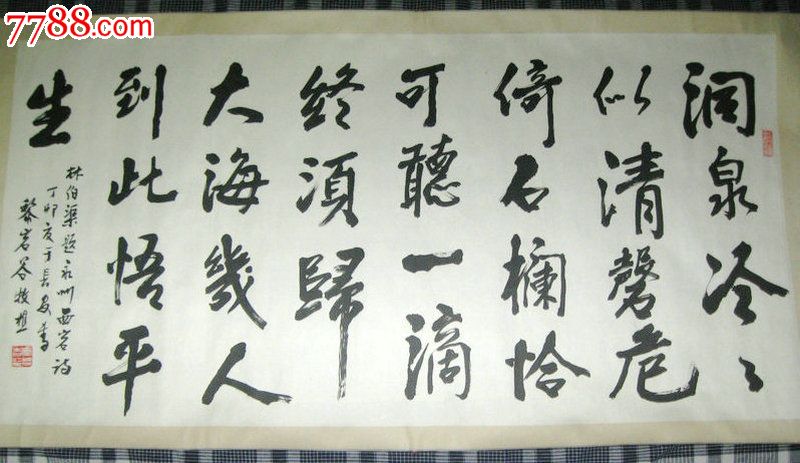 7788.com
洞泉冷々
似清磬危
倚石欄恰
可聽一滴
終須歸
大海幾人
到此悟平
生
林伯渠題永州西岩詩
丁卯夏于長安書